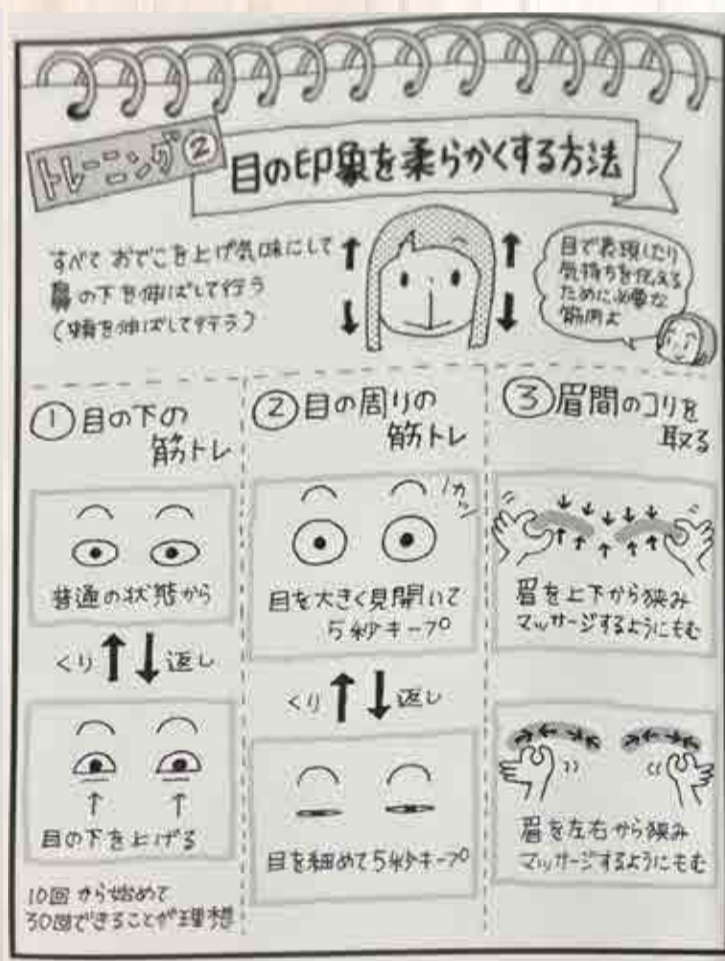 トレーニング②
目の印象を柔らかくする方法
すべて おでこを上げ気味にして
鼻の下を伸ばして行う
(頬を伸ばして行う)
目で表現したり
気持ちを伝える
ために必要な
筋肉よ
①目の下の
筋トレ
普通の状態から
くり返し
目の下を上げる
10回から始めて
30回できることが理想
②目の周りの
筋トレ
カッ
目を大きく見開いて
5秒キープ
くり返し
目を細めて5秒キープ
③眉間のコリを
取る
眉を上下から狭み
マッサージするようにもむ
眉を左右から狭み
マッサージするようにもむ